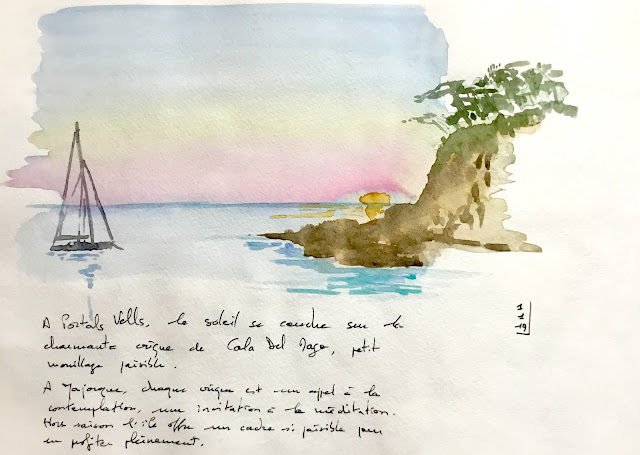 A Portals Vells, le soleil se couche sur la
charmante crique de Cala Del Mago, petit
mouillage paisible.
A Majorque, chaque crique est un appel à la
contemplation, une invitation à la méditation.
Hors saison l'île offre un cadre si paisible pour
en profiter pleinement.